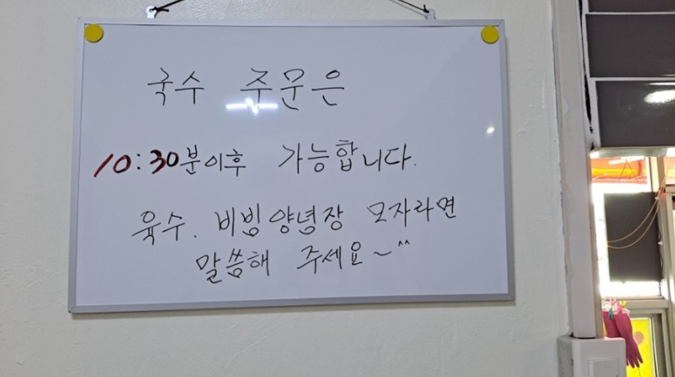 국수 주문은
10:30분이후 가능합니다.
육수. 비빔양념장 모자라면
말씀해 주세요~^^